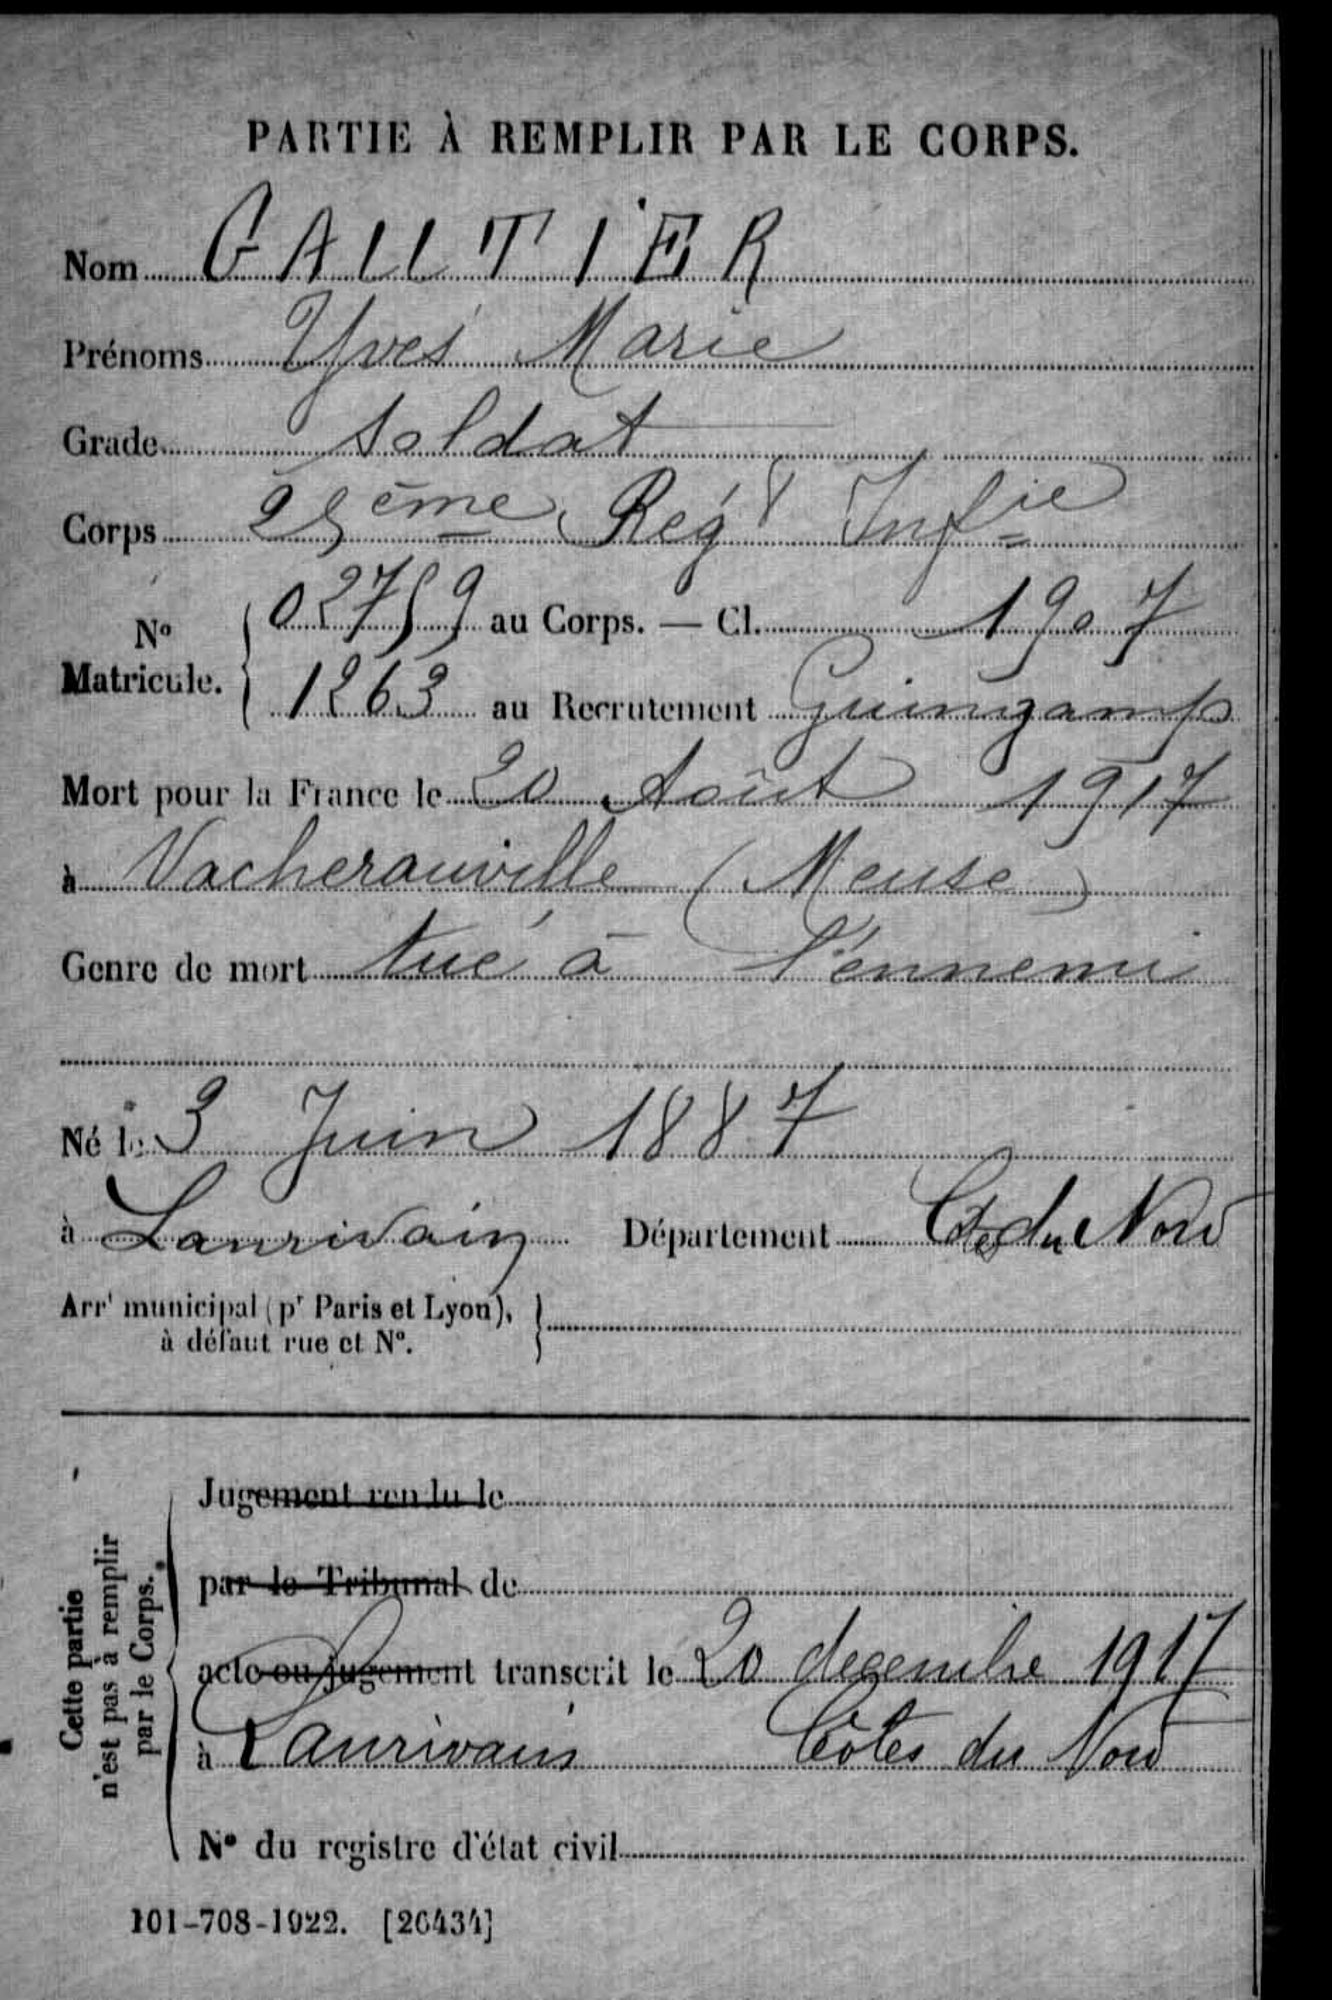 PARTIE À REMPLIR PAR LE CORPS.
Nom GAUTIER
Prénoms Yves Marie
Grade soldat
Corps 25ème Régt Infie
No Matricule. 02759 au Corps. — Cl. 1907
1263 au Recrutement Guingamp
Mort pour la France le 20 Août 1917
à Vacherauville (Meuse)
Genre de mort tué à l'ennemi
Né le 3 Juin 1887
à Lanrivain Département Côtes du Nord
Arrt municipal (pr Paris et Lyon),
à défaut rue et N°.
Cette partie
n'est pas à remplir
par le Corps.
Jugement rendu le
par le Tribunal de
acte ou jugement transcrit le 20 decembre 1917
à Lanrivain Côtes du Nord
N° du registre d'état civil
101-708-1922. [26434]